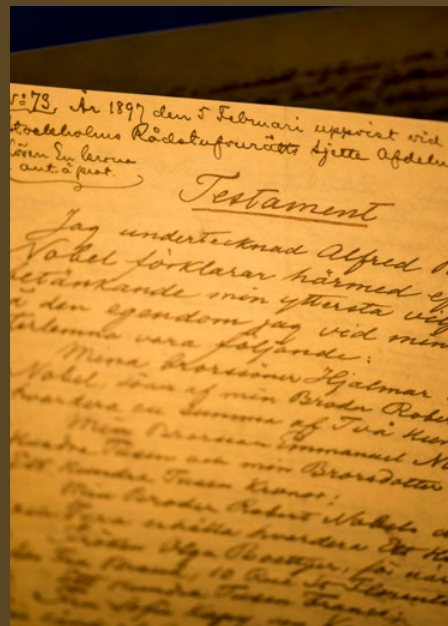 № 73. År 1897 den 5 Februari uppvist vid
Stockholms Rådstufvurätts sjette Afdeln
Lösen En krona
ant. à prot.
Testament
Jag undertecknad Alfred
Nobel förklarar härmed
betänkande min yttersta
den egendom jag vid min
efterlemna vara följande:
Mina Brorsöner Hjalmar
Nobel, söner af min Broder Robert
hvardera en summa af Två
Min Brorson Emmanuel
Hundra Tusen och min Brorsdotter
Ett Hundra Tusen Kronor;
Min Broder Robert Nobels
erhålla hvardera Ett
Fröken Olga Boettger, för
10 Rue St Florentin
Ett Hundra Tusen Francs;
Fru Sofie Kapy von